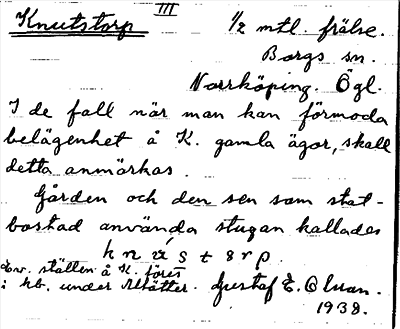 Knutstorp III 1/2 mtl. frälse.
Borgs sn.
Norrköping. Ögl.
I de fall när man kan förmoda
belägenhet å K. gamla ägor, skall
detta anmärkas.
Gården och den sen som stat-
bostad använda stugan kallades
Ev. ställen å K. föres
i hb. under Ättätter. Gustaf E. Olsson.
1938.